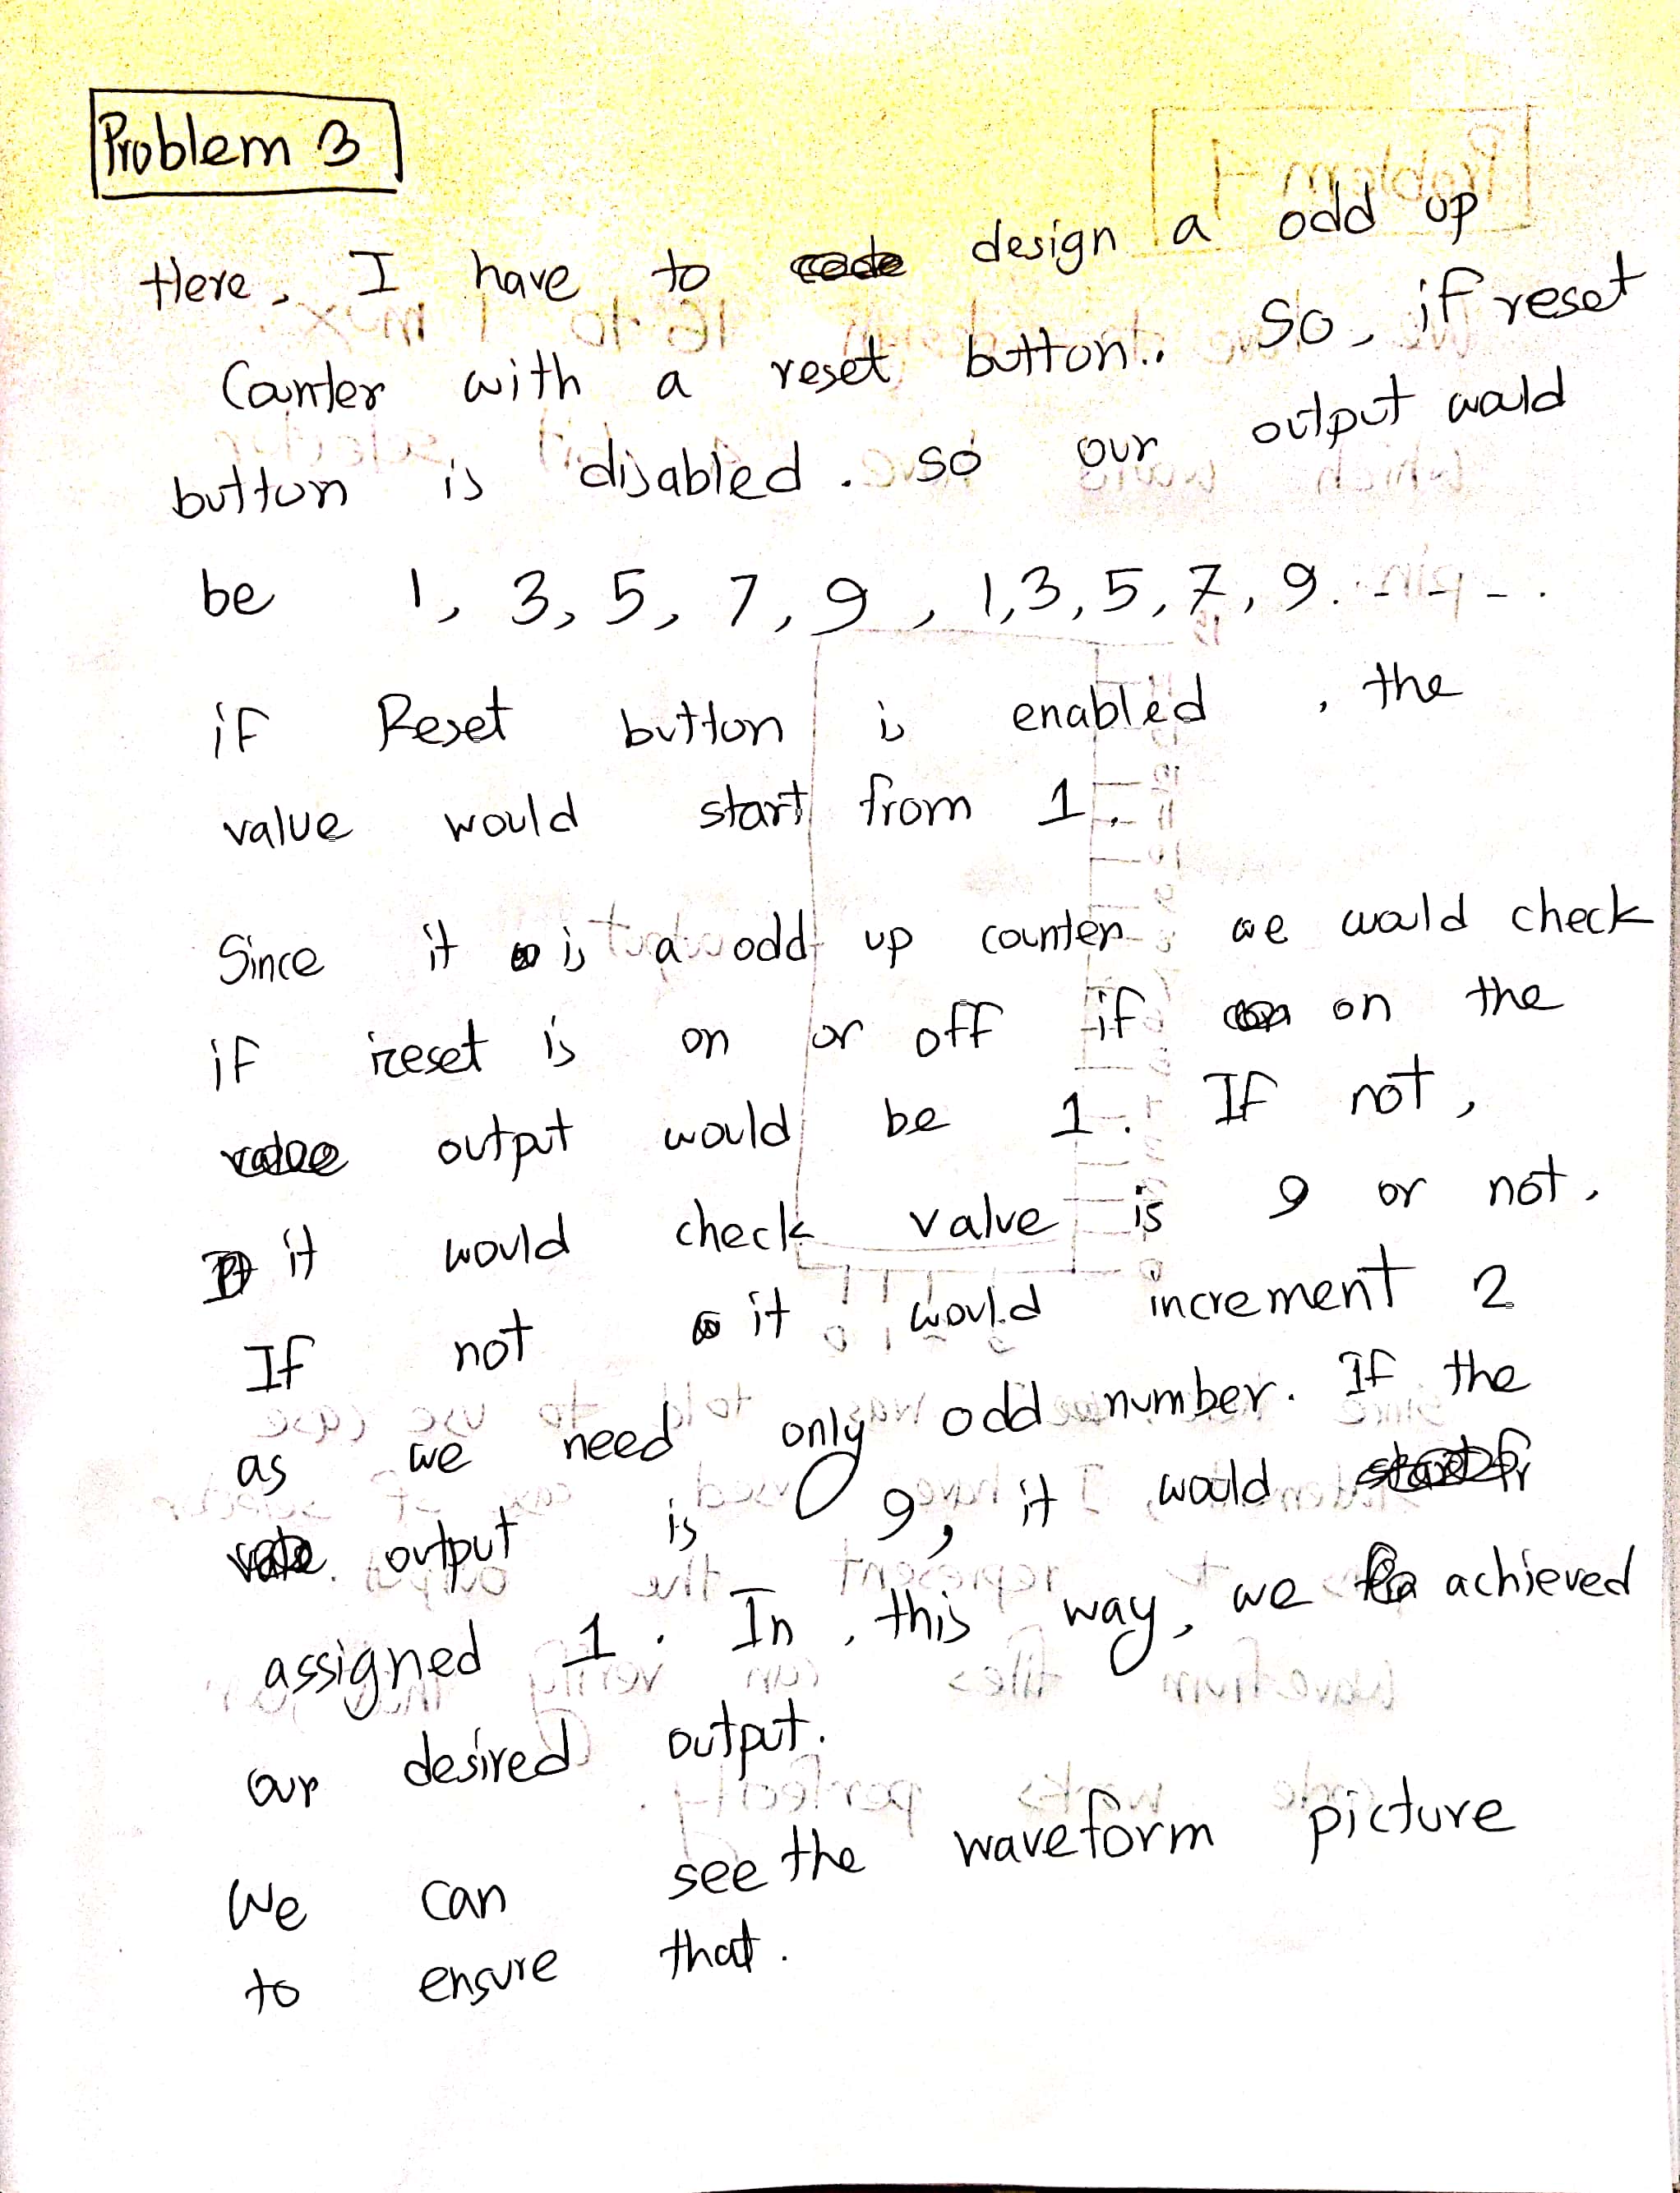 Problem 3
Here, I have to design a odd up
Counter with a reset button.. So, if reset
button is disabled. so our output would
be 1, 3, 5, 7, 9, 1,3,5,7,9. - - - .
if Reset button is enabled, the
value would start from 1.
Since it is a odd up counter we would check
if reset is on or off if on the
output would be 1. If not,
it would check value is 9 or not.
If not it would increment 2
as we need only odd number. If the
output is 9, it would
assigned 1. In this way, we achieved
our desired output.
We can see the waveform picture
to ensure that.